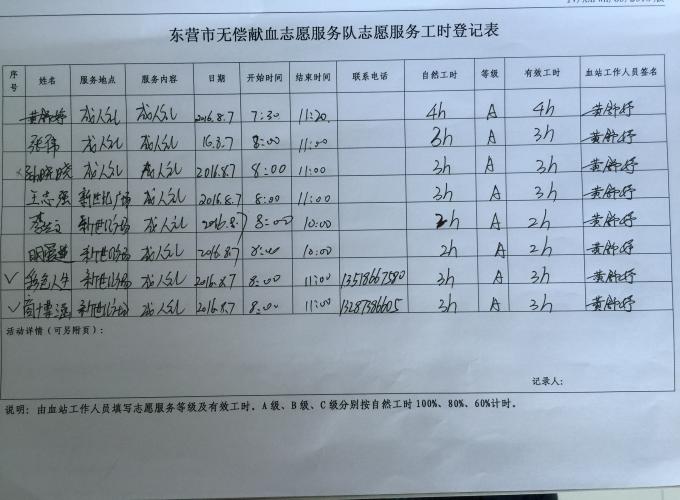 东营市无偿献血志愿服务队志愿服务工时登记表
序号 姓名 服务地点 服务内容 日期 开始时间 结束时间 联系电话 自然工时 等级 有效工时 血站工作人员签名
成人礼 成人礼 2016.8.7 7:30 11:20 4h A 4h
张伟 成人礼 成人礼 16.8.7 8:00 11:00 3h A 3h
成人礼 成人礼 2016.8.7 8:00 11:00 3h A 3h
王志强 新世纪广场 成人礼 2016.8.7 8:00 11:00 3h A 3h
新世纪广场 成人礼 2016.8.7 8:00 10:00 2h A 2h
新世纪广场 成人礼 2016.8.7 8:00 10:00 2h A 2h
✓ 彩色人生 新世纪广场 成人礼 2016.8.7 8:00 11:00 13518667580 3h A 3h
✓ 新世纪广场 成人礼 2016.8.7 8:00 11:00 13287386605 3h A 3h
活动详情(可另附页):
记录人:
说明: 由血站工作人员填写志愿服务等级及有效工时。A级、B级、C级分别按自然工时100%、80%、60%计时。